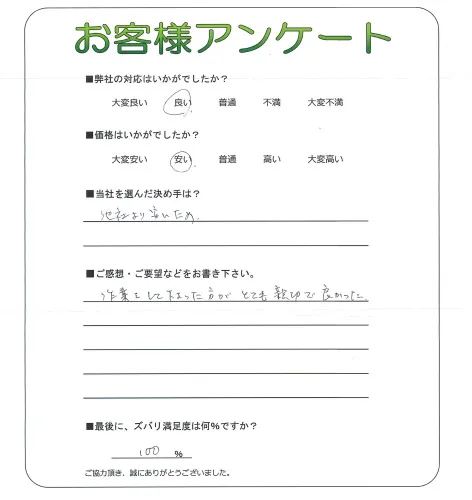 お客様アンケート
■弊社の対応はいかがでしたか？
大変良い 良い 普通 不満 大変不満
■価格はいかがでしたか？
大変安い 安い 普通 高い 大変高い
■当社を選んだ決め手は？
他社より安いため。
■ご感想・ご要望などをお書き下さい。
作業をして下さった方がとても親切で良かった
■最後に、ズバリ満足度は何％ですか？
100 ％
ご協力頂き、誠にありがとうございました。